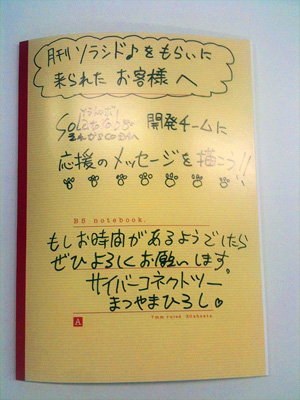 月刊ソラシド♪をもらいに
来られた お客様へ
開発チームに
応援のメッセージを描こう!!
B5 notebook.
もしお時間があるようでしたら
ぜひよろしくお願いします
サイバーコネクトツー
まつやまひろし
A